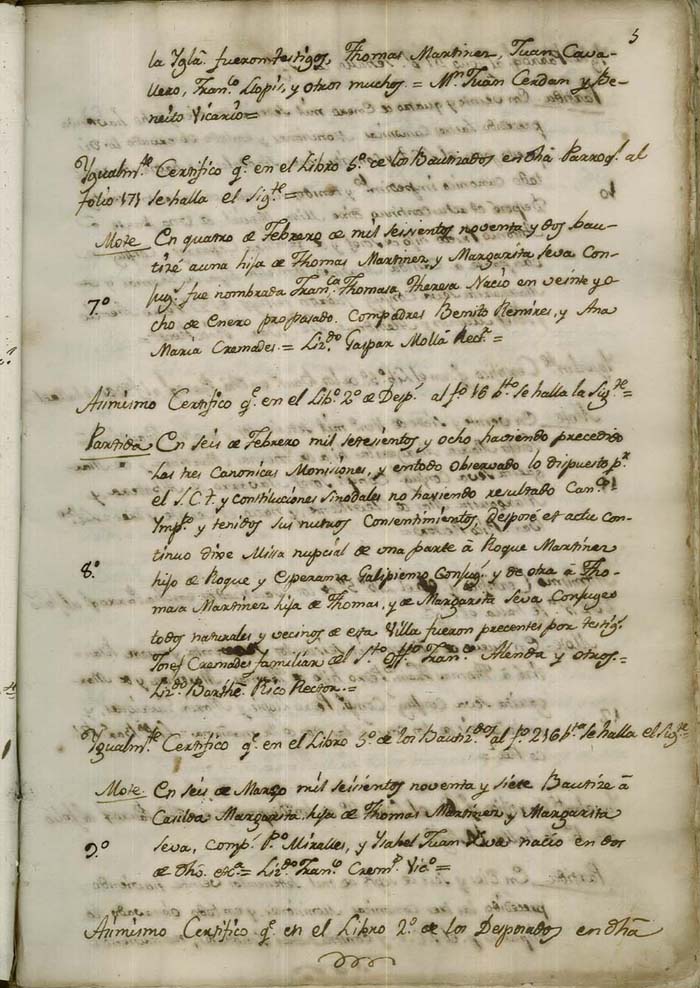 5
la Yglã. fueron testigos, Thomas Martinez, Juan Cava-
llero, Franco. Llopis, y otros muchos = Mn. Juan Cerdan y Be-
neito Vicario=
Ygualmte. Certifico q̃. en el Libro 5º. de los Bautizados en dhã Parroq̃. al
folio 171 se halla el sigte.=
Mote En quatro de Febrero de mil seissientos noventa y dos bau-
tizé a una hija de Thomas Martinez y Margarita Seva Con-
jug. fue nombrada Franca. Thomasa, Theresa Nacio en veinte y o
7.º
cho de Enero propasado. Compadres Benito Remires, y Ana
Maria Cremades.= Lizdo. Gaspar Mollà Rect.=
Asimismo Certifico q̃. en el Libº. 2º. de Desp. al fº. 16 bto. se halla la Sigte.=
Partida En seis de Febrero mil setesientos y ocho, haviendo precedido
las tres Canonicas Monisiones, y en todo observado lo dispuesto pr.
el S.C.T. y constituciones sinodales no haviendo resultado Canco.
Ympto. y tenidos sus mutuos Consentimientos, desposé et actu con-
tinuo dixe Missa nupcial de una parte à Roque Martinez
8.º
hijo de Roque y Esperansa Galipienso Conjug. y de otra à Tho-
masa Martinez hija de Thomas, y de Margarita Seva Conjuges
todos naturales y vecinos de esta Villa fueron precentes por testig.
Josef Cremades familiar del Sto. Offo. Franco. Alenda y otros.=
Lizdo. Barthe. Rico Rector.=
Ygualmte. Certifico q̃. en el Libro 5º. de los Bautizdos. al fº. 216 bta. se halla el Sigte.
Mote En seis de Março mil seisientos noventa y siete Bautize à
Casilda Margarita hija de Thomas Martinez y Margarita
9.º
Seva, Comp. Po. Miralles, y Ysabel Juan nacio en dos
de dho. etca.= Lizdo. Franco. Crem. Vico.=
Asimismo Certifico q̃. en el Libro 2º. de los Desposados en dhã